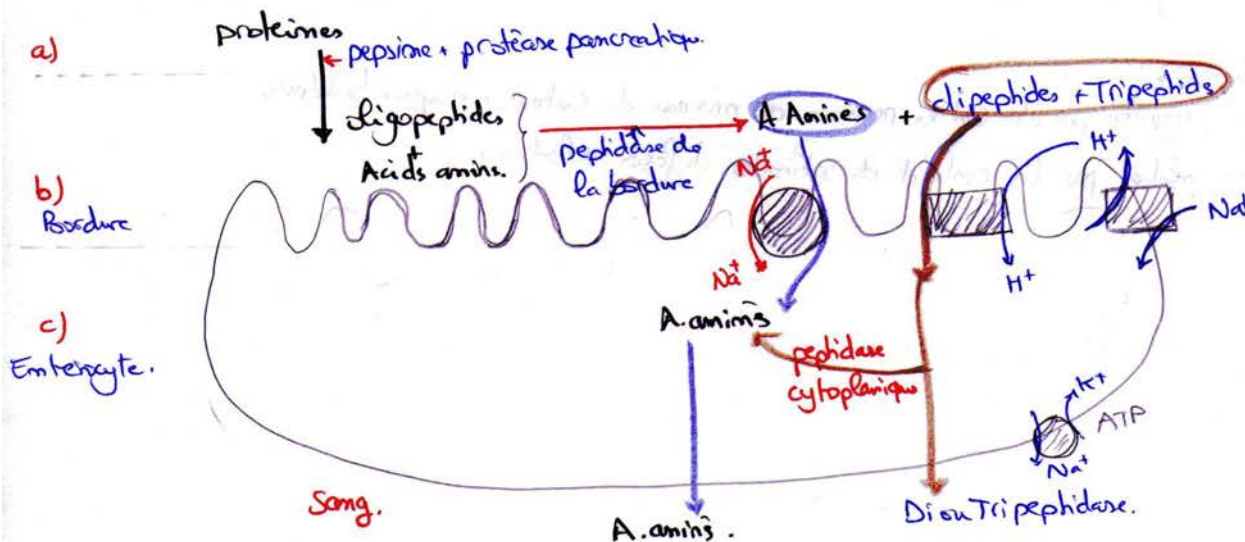 a)
proteines
pepsine + protéase pancreatique.
oligopeptides
+
Acids amins.
peptidase de
la bordure
A Aminés + dipeptides + Tripeptids
b)
Bordure
Na+
Na+
H+
H+
Na+
c)
Enterocyte.
A.aminés
peptidase
cytoplanique
K+
ATP
Na+
Sang.
A.aminś.
Di ou Tripeptidase.